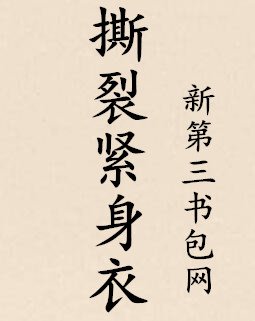 撕裂紧身衣
新第三书包网